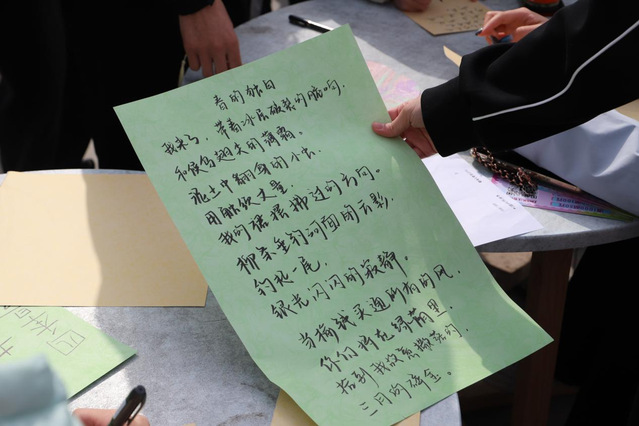 春的独白
我来了，带着冰层破裂的脆响，
和候鸟翅尖的薄霜。
泥土中翻身的小虫，
用触须丈量，
我的裙裾拂过的方向。
柳条垂钓河面的云影，
钓起一尾，
银光闪闪的寂静。
当榆钱买通所有的风，
你们将在绿荫里，
拾到我故意撒落的，
三月的碎金。